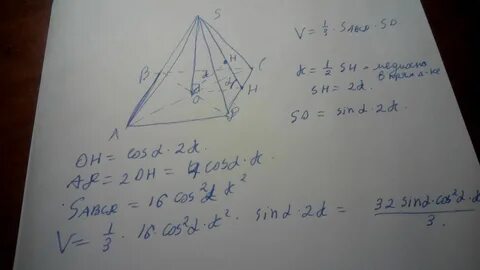 S
B
H
C
α
H
O
A
V = 1/3 · S_ABCD · SO
k = 1/2 SH - медиана
в прям Δ-ке
SH = 2k.
SO = sinα · 2k.
OH = cosα · 2k.
AD = 2OH = 4cosα · k
S_ABCD = 16 cos²α k²
V = 1/3 · 16 cos²α · k² · sinα · 2k = 32 sinα · cos²α · k
3.